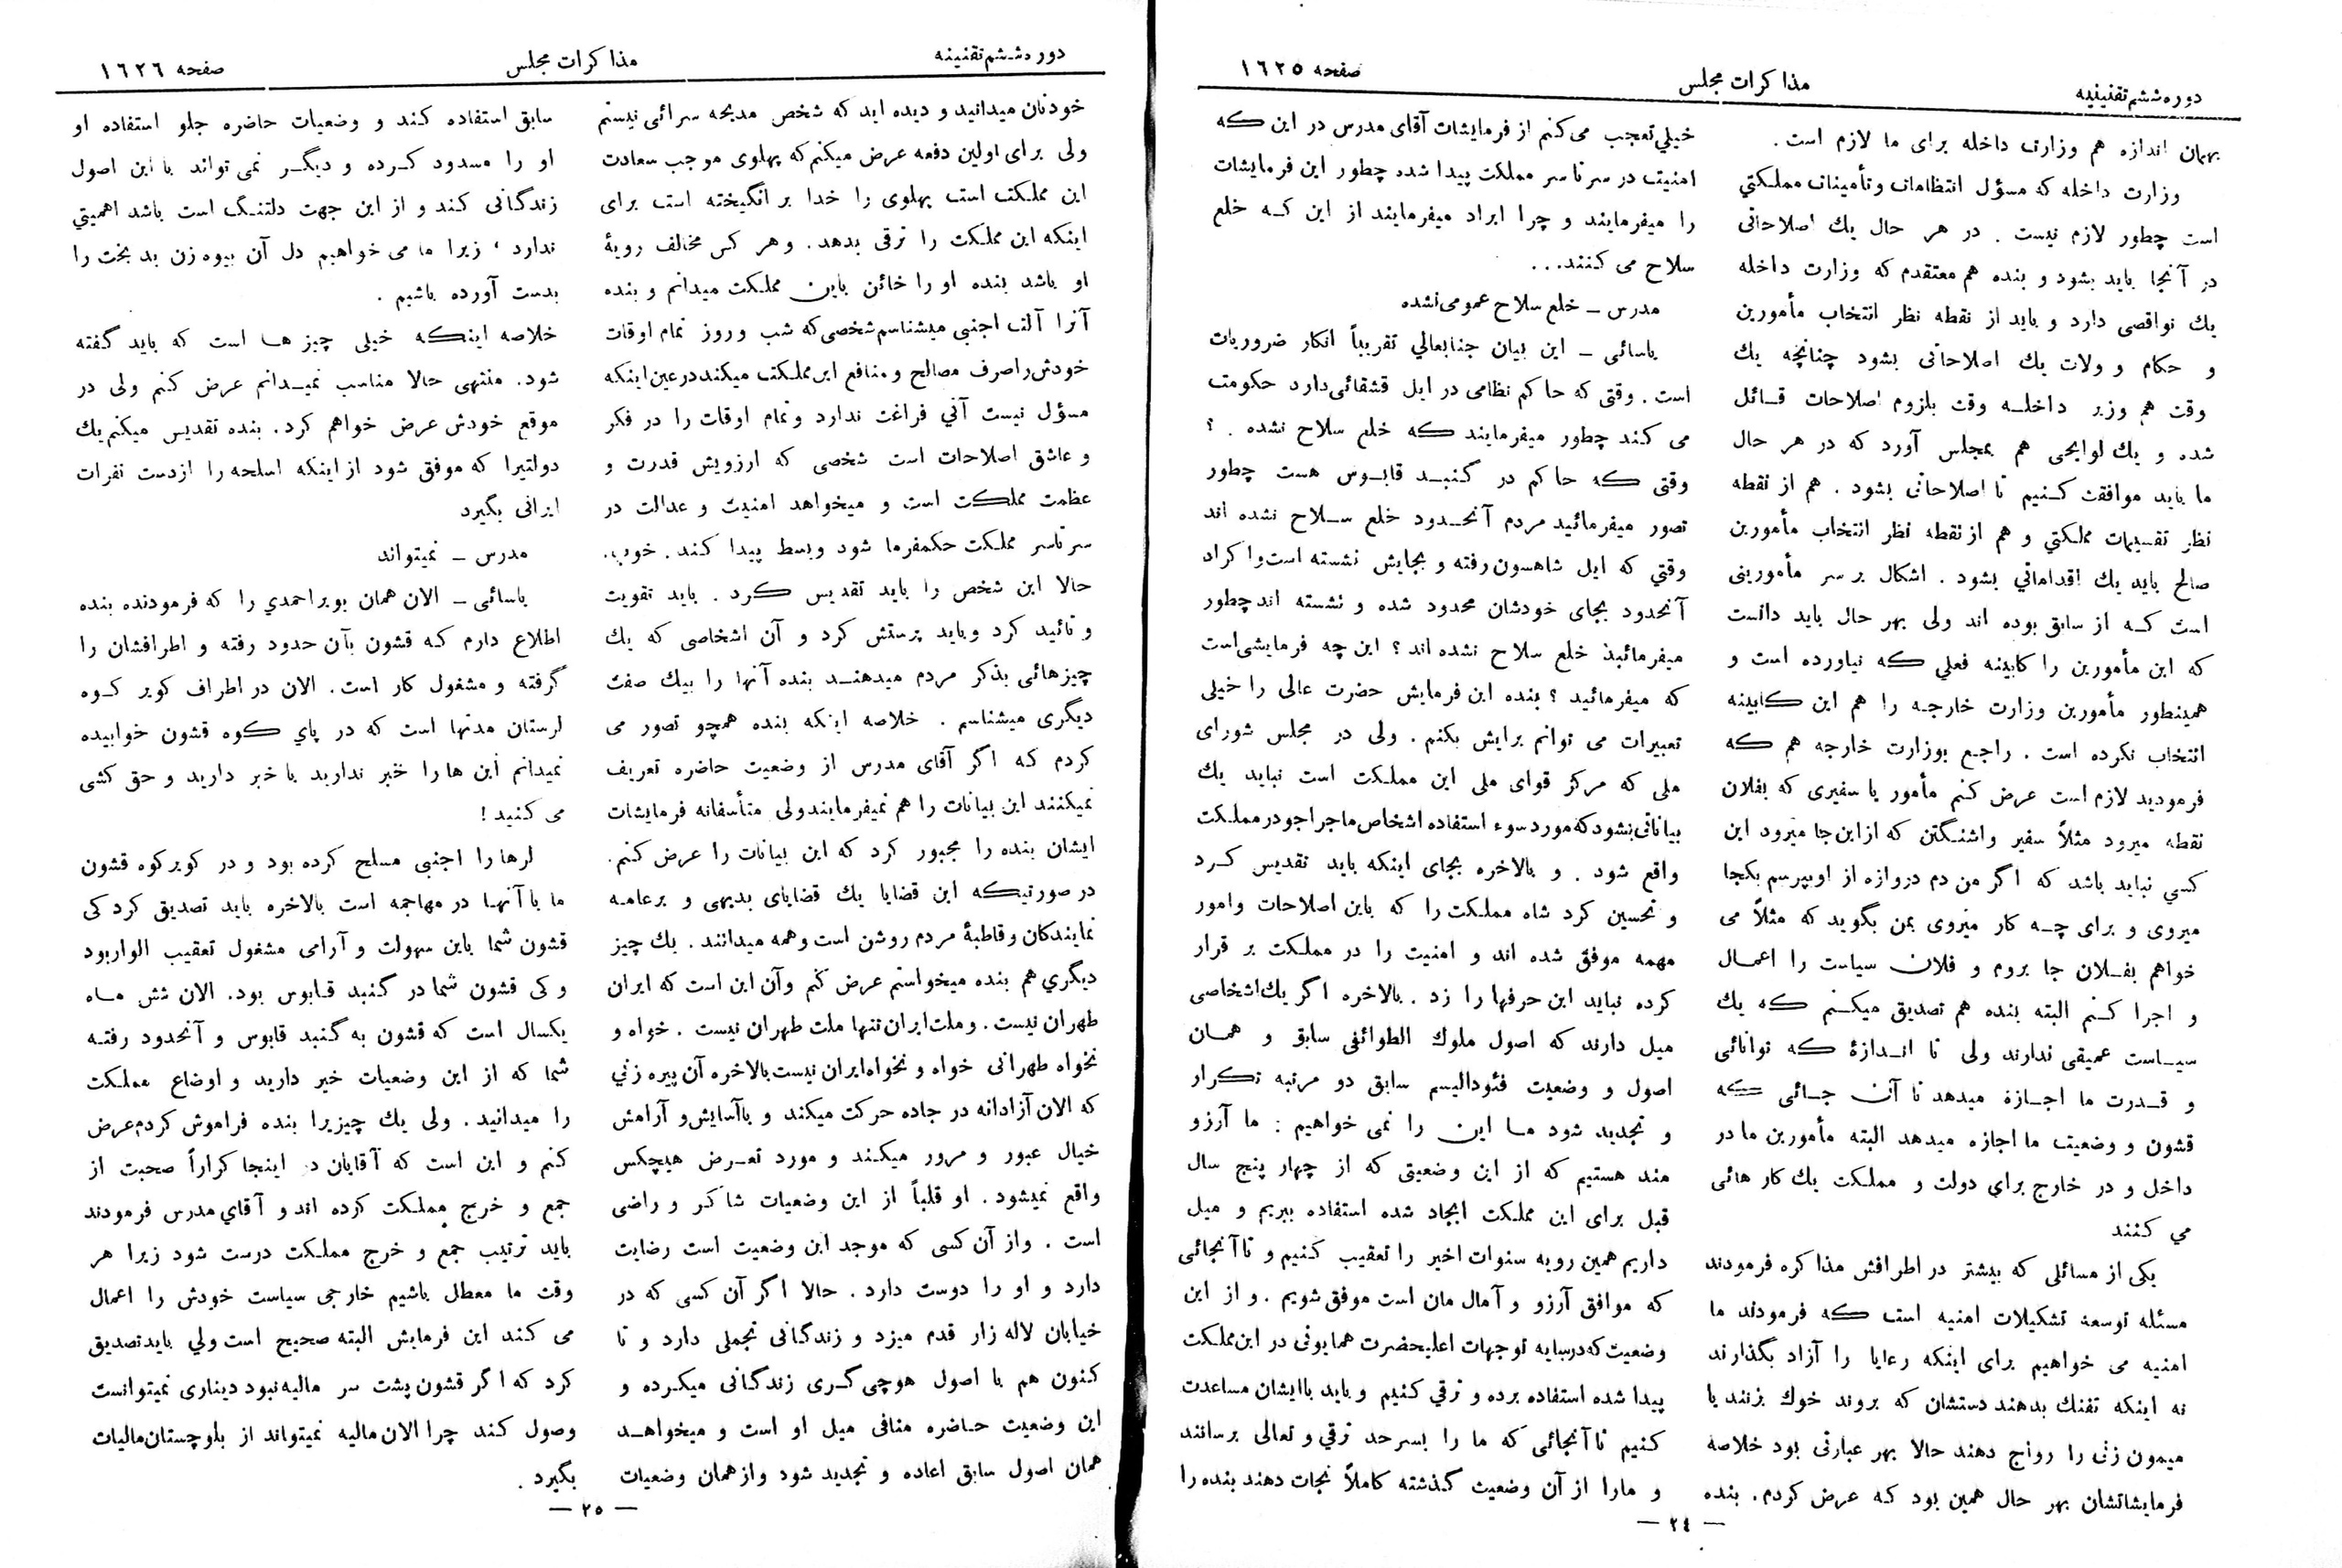 دوره ششم تقنینیه
مذاکرات مجلس
صفحه ١٦٢٥
بهمان اندازه هم وزارت داخله برای ما لازم است .
وزارت داخله که مسؤل انتظامات و تأمینات مملکتي
است چطور لازم نیست . در هر حال یك اصلاحاتی
در آنجا باید بشود و بنده هم معتقدم که وزارت داخله
یك نواقصی دارد و باید از نقطه نظر انتخاب مأمورین
و حکام و ولات یك اصلاحاتی بشود چنانچه یك
وقت هم وزیر داخله وقت بلزوم اصلاحات قائل
شده و یك لوایحی هم بمجلس آورد که در هر حال
ما باید موافقت کنیم تا اصلاحاتی بشود . هم از نقطه
نظر تقسیمات مملکتي و هم از نقطه نظر انتخاب مأمورین
صالح باید یك اقداماتي بشود . اشکال بر سر مأمورینی
است که از سابق بوده اند ولی بهر حال باید دانست
که این مأمورین را کابینه فعلي که نیاورده است و
همینطور مأمورین وزارت خارجه را هم این کابینه
انتخاب نکرده است . راجع بوزارت خارجه هم که
فرمودید لازم است عرض کنم مأمور یا سفیری که بفلان
نقطه میرود مثلاً سفیر واشنگتن که از این جا میرود این
کسي نباید باشد که اگر من دم دروازه از او بپرسم بکجا
میروی و برای چه کار میروی بمن بگوید که مثلاً می
خواهم بفلان جا بروم و فلان سیاست را اعمال
و اجرا کنم البته بنده هم تصدیق میکنم که یك
سیاست عمیقی ندارند ولی تا اندازهٔ که توانائی
و قدرت ما اجازه میدهد تا آن جائی که
قشون و وضعیت ما اجازه میدهد البته مأمورین ما در
داخل و در خارج براي دولت و مملکت یك کار هائی
مي کنند
یکی از مسائلی که بیشتر در اطرافش مذاکره فرمودند
مسئله توسعه تشکیلات امنیه است که فرمودند ما
امنیه می خواهیم برای اینکه رعایا را آزاد بگذارند
نه اینکه تفنك بدهند دستشان که بروند خوك بزنند یا
میمون زنی را رواج دهند حالا بهر عبارتی بود خلاصه
فرمایشاتشان بهر حال همین بود که عرض کردم. بنده
خیلي تعجب می کنم از فرمایشات آقای مدرس در این که
امنیت در سر تا سر مملکت پیدا شده چطور این فرمایشات
را میفرمایند و چرا ایراد میفرمایند از این که خلع
سلاح می کنند...
مدرس ــ خلع سلاح عمومی نشده
یاسائی ــ این بیان جنابعالي تقریباً انکار ضروریات
است . وقتی که حاکم نظامی در ایل قشقائی دارد حکومت
می کند چطور میفرمایند که خلع سلاح نشده . ؟
وقتی که حاکم در گنبد قابوس هست چطور
تصور میفرمائید مردم آنحدود خلع سلاح نشده اند
وقتي که ایل شاهسون رفته و بجایش نشسته است و اکراد
آنحدود بجای خودشان محدود شده و نشسته اند چطور
میفرمائید خلع سلاح نشده اند ؟ این چه فرمایشی است
که میفرمائید ؟ بنده این فرمایش حضرت عالی را خیلی
تعبیرات می توانم برایش بکنم . ولی در مجلس شورای
ملی که مرکز قوای ملی این مملکت است نباید یك
بیاناتی بشود که مورد سوء استفاده اشخاص ماجراجو در مملکت
واقع شود . و بالاخره بجای اینکه باید تقدیس کرد
و تحسین کرد شاه مملکت را که باین اصلاحات و امور
مهمه موفق شده اند و امنیت را در مملکت بر قرار
کرده نباید این حرفها را زد . بالاخره اگر یك اشخاصی
میل دارند که اصول ملوك الطوائفی سابق و همان
اصول و وضعیت فئودالیسم سابق دو مرتبه تکرار
و تجدید شود ما این را نمی خواهیم : ما آرزو
مند هستیم که از این وضعیتی که از چهار پنج سال
قبل برای این مملکت ایجاد شده استفاده ببریم و میل
داریم همین رویه سنوات اخیر را تعقیب کنیم و تا آنجائی
که موافق آرزو و آمال مان است موفق شویم . و از این
وضعیت که در سایه توجهات اعلیحضرت همایونی در این مملکت
پیدا شده استفاده برده و ترقي کنیم و باید باایشان مساعدت
کنیم تا آنجائی که ما را بسرحد ترقي و تعالی برسانند
و مارا از آن وضعیت گذشته کاملاً نجات دهند بنده را
— ٢٤ —
دوره ششم تقنینیه
مذاکرات مجلس
صفحه ١٦٢٦
خودتان میدانید و دیده اید که شخص مدیحه سرائی نیستم
ولی برای اولین دفعه عرض میکنم که پهلوی موجب سعادت
این مملکت است پهلوی را خدا بر انگیخته است برای
اینکه این مملکت را ترقی بدهد. و هر کس مخالف رویهٔ
او باشد بنده او را خائن باین مملکت میدانم و بنده
آنرا آلت اجنبی میشناسم شخصی که شب و روز تمام اوقات
خودش را صرف مصالح و منافع این مملکت میکند در عین اینکه
مسؤل نیست آني فراغت ندارد و تمام اوقات را در فکر
و عاشق اصلاحات است شخصی که ارزویش قدرت و
عظمت مملکت است و میخواهد امنیت و عدالت در
سرتاسر مملکت حکمفرما شود وبسط پیدا کند . خوب.
حالا این شخص را باید تقدیس کرد . باید تقویت
و تائید کرد وباید پرستش کرد و آن اشخاصی که یك
چیزهائی بذکر مردم میدهند بنده آنها را بیك صفت
دیگری میشناسم . خلاصه اینکه بنده همچو تصور می
کردم که اگر آقای مدرس از وضعیت حاضره تعریف
نمیکنند این بیانات را هم نمیفرمایند ولی متأسفانه فرمایشات
ایشان بنده را مجبور کرد که این بیانات را عرض کنم.
در صورتیکه این قضایا یك قضایای بدیهی و بر عامه
نمایندگان و قاطبهٔ مردم روشن است و همه میدانند . یك چیز
دیگري هم بنده میخواستم عرض کنم و آن این است که ایران
طهران نیست . و ملت ایران تنها ملت طهران نیست . خواه و
نخواه طهرانی خواه و نخواه ایران نیست بالاخره آن پیره زني
که الان آزادانه در جاده حرکت میکند و باآسایش و آرامش
خیال عبور و مرور میکند و مورد تعرض هیچکس
واقع نمیشود . او قلباً از این وضعیات شاکر و راضی
است . و از آن کسی که موجد این وضعیت است رضایت
دارد و او را دوست دارد . حالا اگر آن کسی که در
خیابان لاله زار قدم میزد و زندگانی تجملی دارد و تا
کنون هم با اصول هوچی گری زندگانی میکرده و
این وضعیت حاضره منافی میل او است و میخواهد
همان اصول سابق اعاده و تجدید شود و از همان وضعیات
سابق استفاده کند و وضعیات حاضره جلو استفاده او
او را مسدود کرده و دیگر نمی تواند با این اصول
زندگانی کند و از این جهت دلتنگ است باشد اهمیتي
ندارد ، زیرا ما می خواهیم دل آن بیوه زن بد بخت را
بدست آورده باشیم .
خلاصه اینکه خیلی چیز ها است که باید گفته
شود. منتهی حالا مناسب نمیدانم عرض کنم ولی در
موقع خودش عرض خواهم کرد. بنده تقدیس میکنم یك
دولتیرا که موفق شود از اینکه اسلحه را از دست نفرات
ایرانی بگیرد
مدرس ــ نمیتواند
یاسائی ــ الان همان بویر احمدي را که فرمودنده بنده
اطلاع دارم که قشون بآن حدود رفته و اطرافشان را
گرفته و مشغول کار است. الان در اطراف کویر کوه
لرستان مدتها است که در پاي کوه قشون خوابیده
نمیدانم این ها را خبر ندارید یا خبر دارید و حق کشی
می کنید !
لرها را اجنبی مسلح کرده بود و در کویر کوه قشون
ما با آنها در مهاجمه است بالاخره باید تصدیق کرد کی
قشون شما باین سهولت و آرامی مشغول تعقیب الوار بود
و کی قشون شما در گنبد قابوس بود. الان شش ماه
یکسال است که قشون به گنبد قابوس و آنحدود رفته
شما که از این وضعیات خبر دارید و اوضاع مملکت
را میدانید . ولی یك چیزیرا بنده فراموش کردم عرض
کنم و این است که آقایان در اینجا کراراً صحبت از
جمع و خرج مملکت کرده اند و آقاي مدرس فرمودند
باید ترتیب جمع و خرج مملکت درست شود زیرا هر
وقت ما معطل باشیم خارجی سیاست خودش را اعمال
می کند این فرمایش البته صحیح است ولي باید تصدیق
کرد که اگر قشون پشت سر مالیه نبود دیناری نمیتوانست
وصول کند چرا الان مالیه نمیتواند از بلوچستان مالیات
بگیرد .
— ٢٥ —